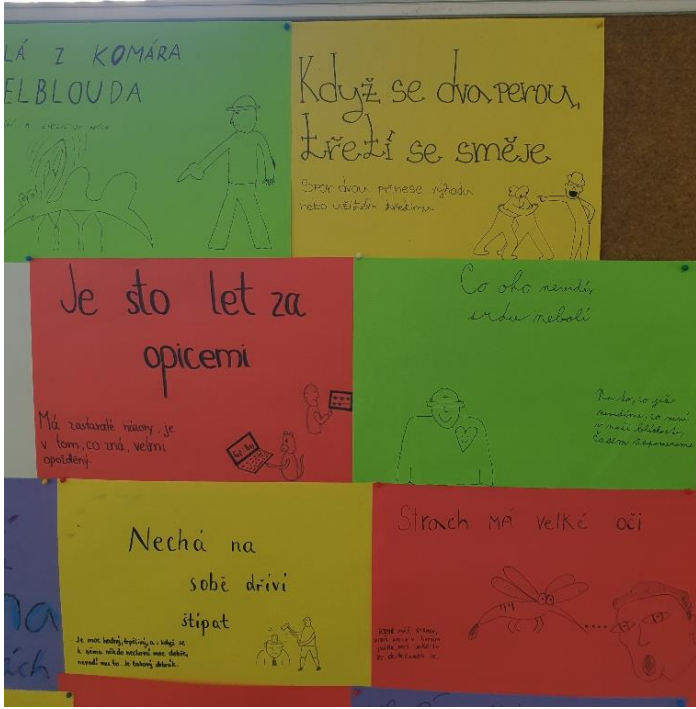 LÁ Z KOMÁRA
ELBLOUDA
Když se dva perou,
třetí se směje
Spor dvou přinese výhodu
nebo užitek třetímu.
Je sto let za
opicemi
Má zastaralé názory, je
v tom, co zná, velmi
opožděný
Co oko nevidí,
srdce nebolí
Na to, co již
nevidíme, co není
v naší blízkosti,
časem zapomeneme
Nechá na
sobě dříví
štípat
Je moc hodný, trpělivý, a i když se
k němu někdo nechová moc dobře,
nevadí mu to. Je takový dobrák.
Strach MÁ velké oči
KDYŽ MÁŠ STRACH,
na
ách